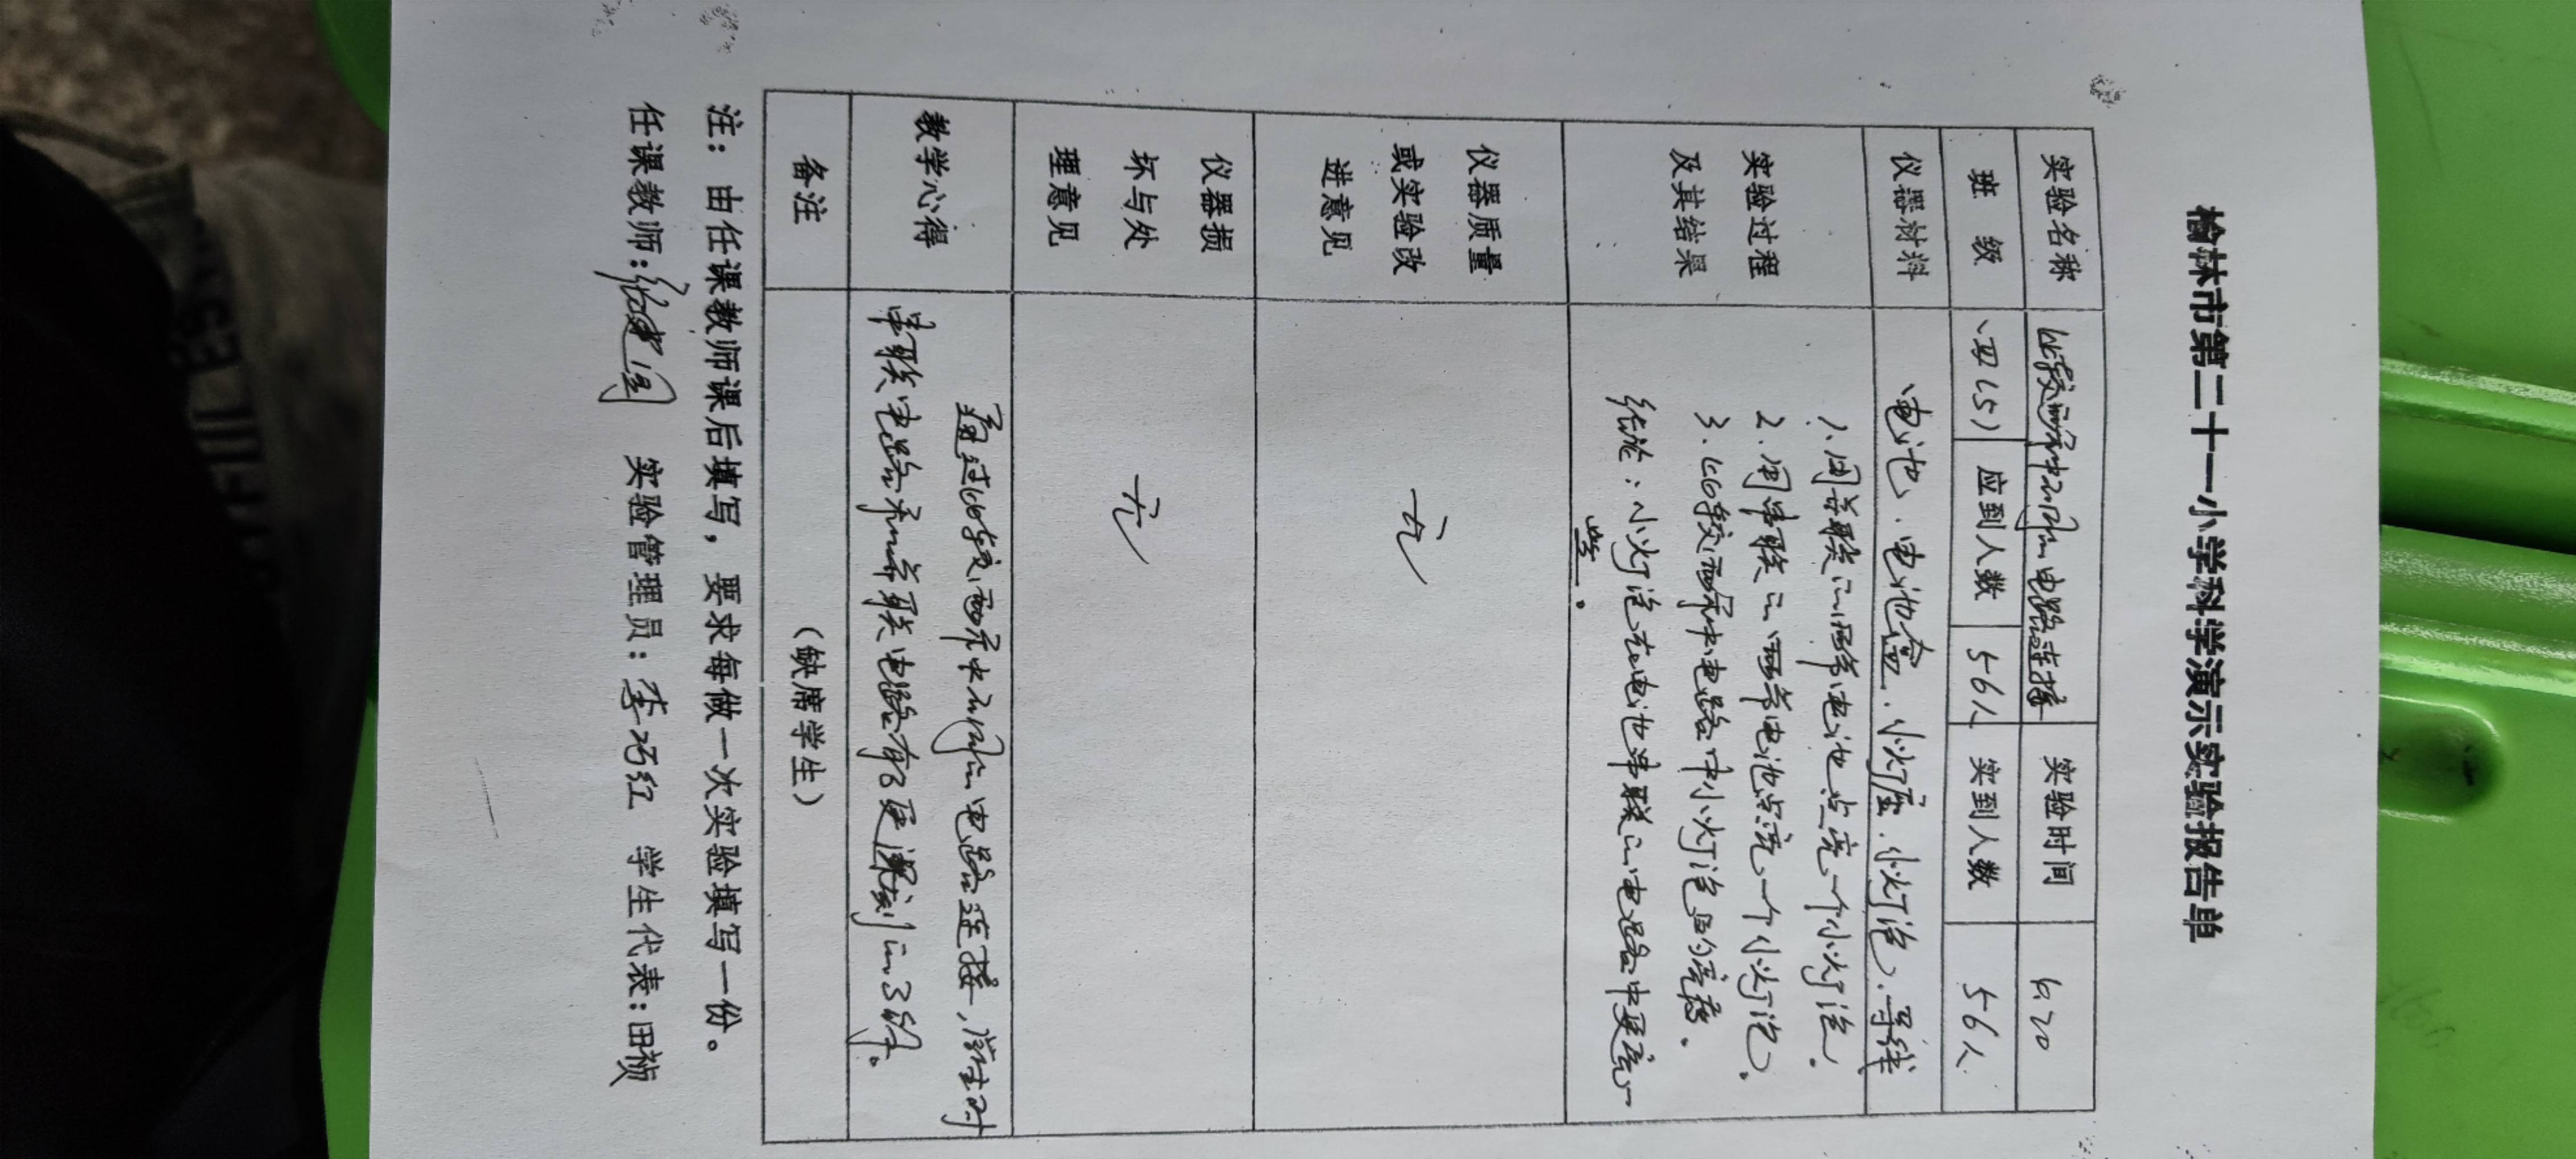 榆林市第二十一小学科学演示实验报告单
实验名称 比较两种不同的电路连接 实验时间 6.20
班 级 四(5) 应到人数 56人 实到人数 56人
仪器材料 电池、电池盒、小灯座、小灯泡、导线
实验过程
及其结果
1.用并联的两节电池点亮一个小灯泡。
2.用串联的两节电池点亮一个小灯泡。
3.比较两种电路中小灯泡的亮度。
结论:小灯泡在电池串联的电路中更亮一
些。
仪器质量
或实验改
进意见
无
仪器损
坏与处
理意见
无
教学心得
通过比较两种不同的电路连接,学生对
串联电路和并联电路有了更深刻的了解。
备注 (缺席学生)
注:由任课教师课后填写,要求每做一次实验填写一份。
任课教师:张建国 实验管理员:李巧红 学生代表:田祯